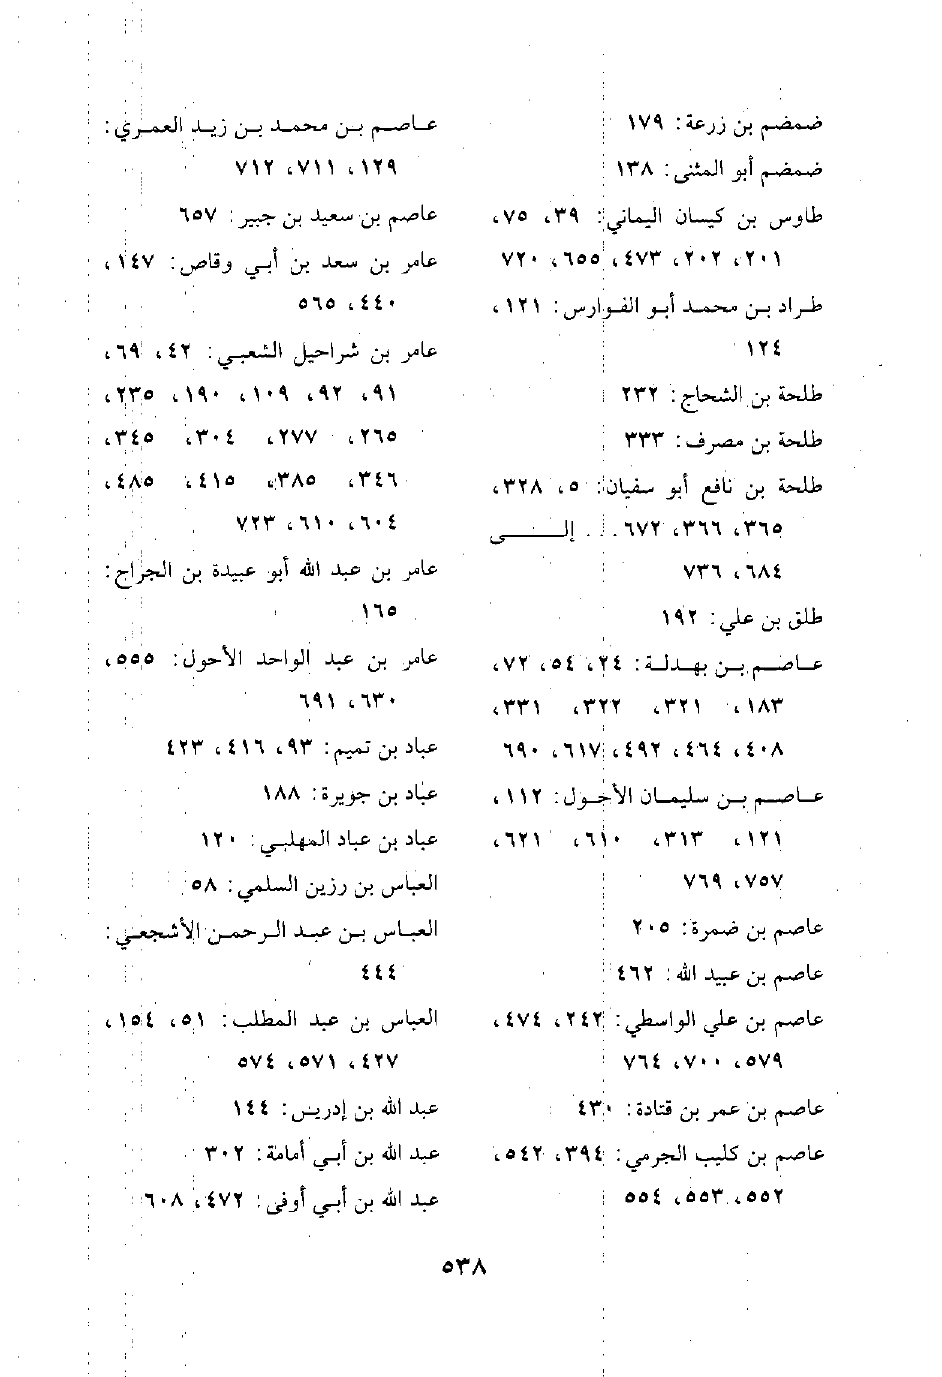 ضمضم بن زرعة: ١٧٩
ضمضم أبو المثنى: ١٣٨
طاوس بن كيسان اليماني: ٣٩، ٧٥،
٢٠١، ٢٠٢، ٤٧٣، ٦٥٥، ٧٢٠
طراد بن محمد أبو الفوارس: ١٢١،
١٢٤
طلحة بن الشحاج: ٢٣٢
طلحة بن مصرف: ٣٣٣
طلحة بن نافع أبو سفيان: ٥، ٣٢٨،
٣٦٥، ٣٦٦، ٦٧٢. . . إلى
٦٨٤، ٧٣٦
طلق بن علي: ١٩٢
عاصم بن بهدلة: ٢٤، ٥٤، ٧٢،
١٨٣، ٣٢١، ٣٢٢، ٣٣١،
٤٠٨، ٤٦٤، ٤٩٢، ٦١٧، ٦٩٠
عاصم بن سليمان الأحول: ١١٢،
١٢١، ٣١٣، ٦١٠، ٦٢١،
٧٥٧، ٧٦٩
عاصم بن ضمرة: ٢٠٥
عاصم بن عبيد الله: ٤٦٢
عاصم بن علي الواسطي: ٢٤٢، ٤٧٤،
٥٧٩، ٧٠٠، ٧٦٤
عاصم بن عمر بن قتادة: ٤٣٠
عاصم بن كليب الجرمي: ٣٩٤، ٥٤٢،
٥٥٢، ٥٥٣، ٥٥٤
عاصم بن محمد بن زيد العمري:
١٢٩، ٧١١، ٧١٢
عاصم بن سعيد بن جبير: ٦٥٧
عامر بن سعد بن أبي وقاص: ١٤٧،
٤٤٠، ٥٦٥
عامر بن شراحيل الشعبي: ٤٢، ٦٩،
٩١، ٩٢، ١٠٩، ١٩٠، ٢٣٥،
٢٦٥، ٢٧٧، ٣٠٤، ٣٤٥،
٣٤٦، ٣٨٥، ٤١٥، ٤٨٥،
٦٠٤، ٦١٠، ٧٢٣
عامر بن عبد الله أبو عبيدة بن الجراح:
١٦٥
عامر بن عبد الواحد الأحول: ٥٥٥،
٦٣٠، ٦٩١
عباد بن تميم: ٩٣، ٤١٦، ٤٢٣
عباد بن جويرة: ١٨٨
عباد بن عباد المهلبي: ١٢٠
العباس بن رزين السلمي: ٥٨
العباس بن عبد الرحمن الأشجعي:
٤٤٤
العباس بن عبد المطلب: ٥١، ١٥٤،
٤٢٧، ٥٧١، ٥٧٤
عبد الله بن إدريس: ١٤٤
عبد الله بن أبي أمامة: ٣٠٢
عبد الله بن أبي أوفى: ٤٧٢، ٦٠٨
٥٣٨